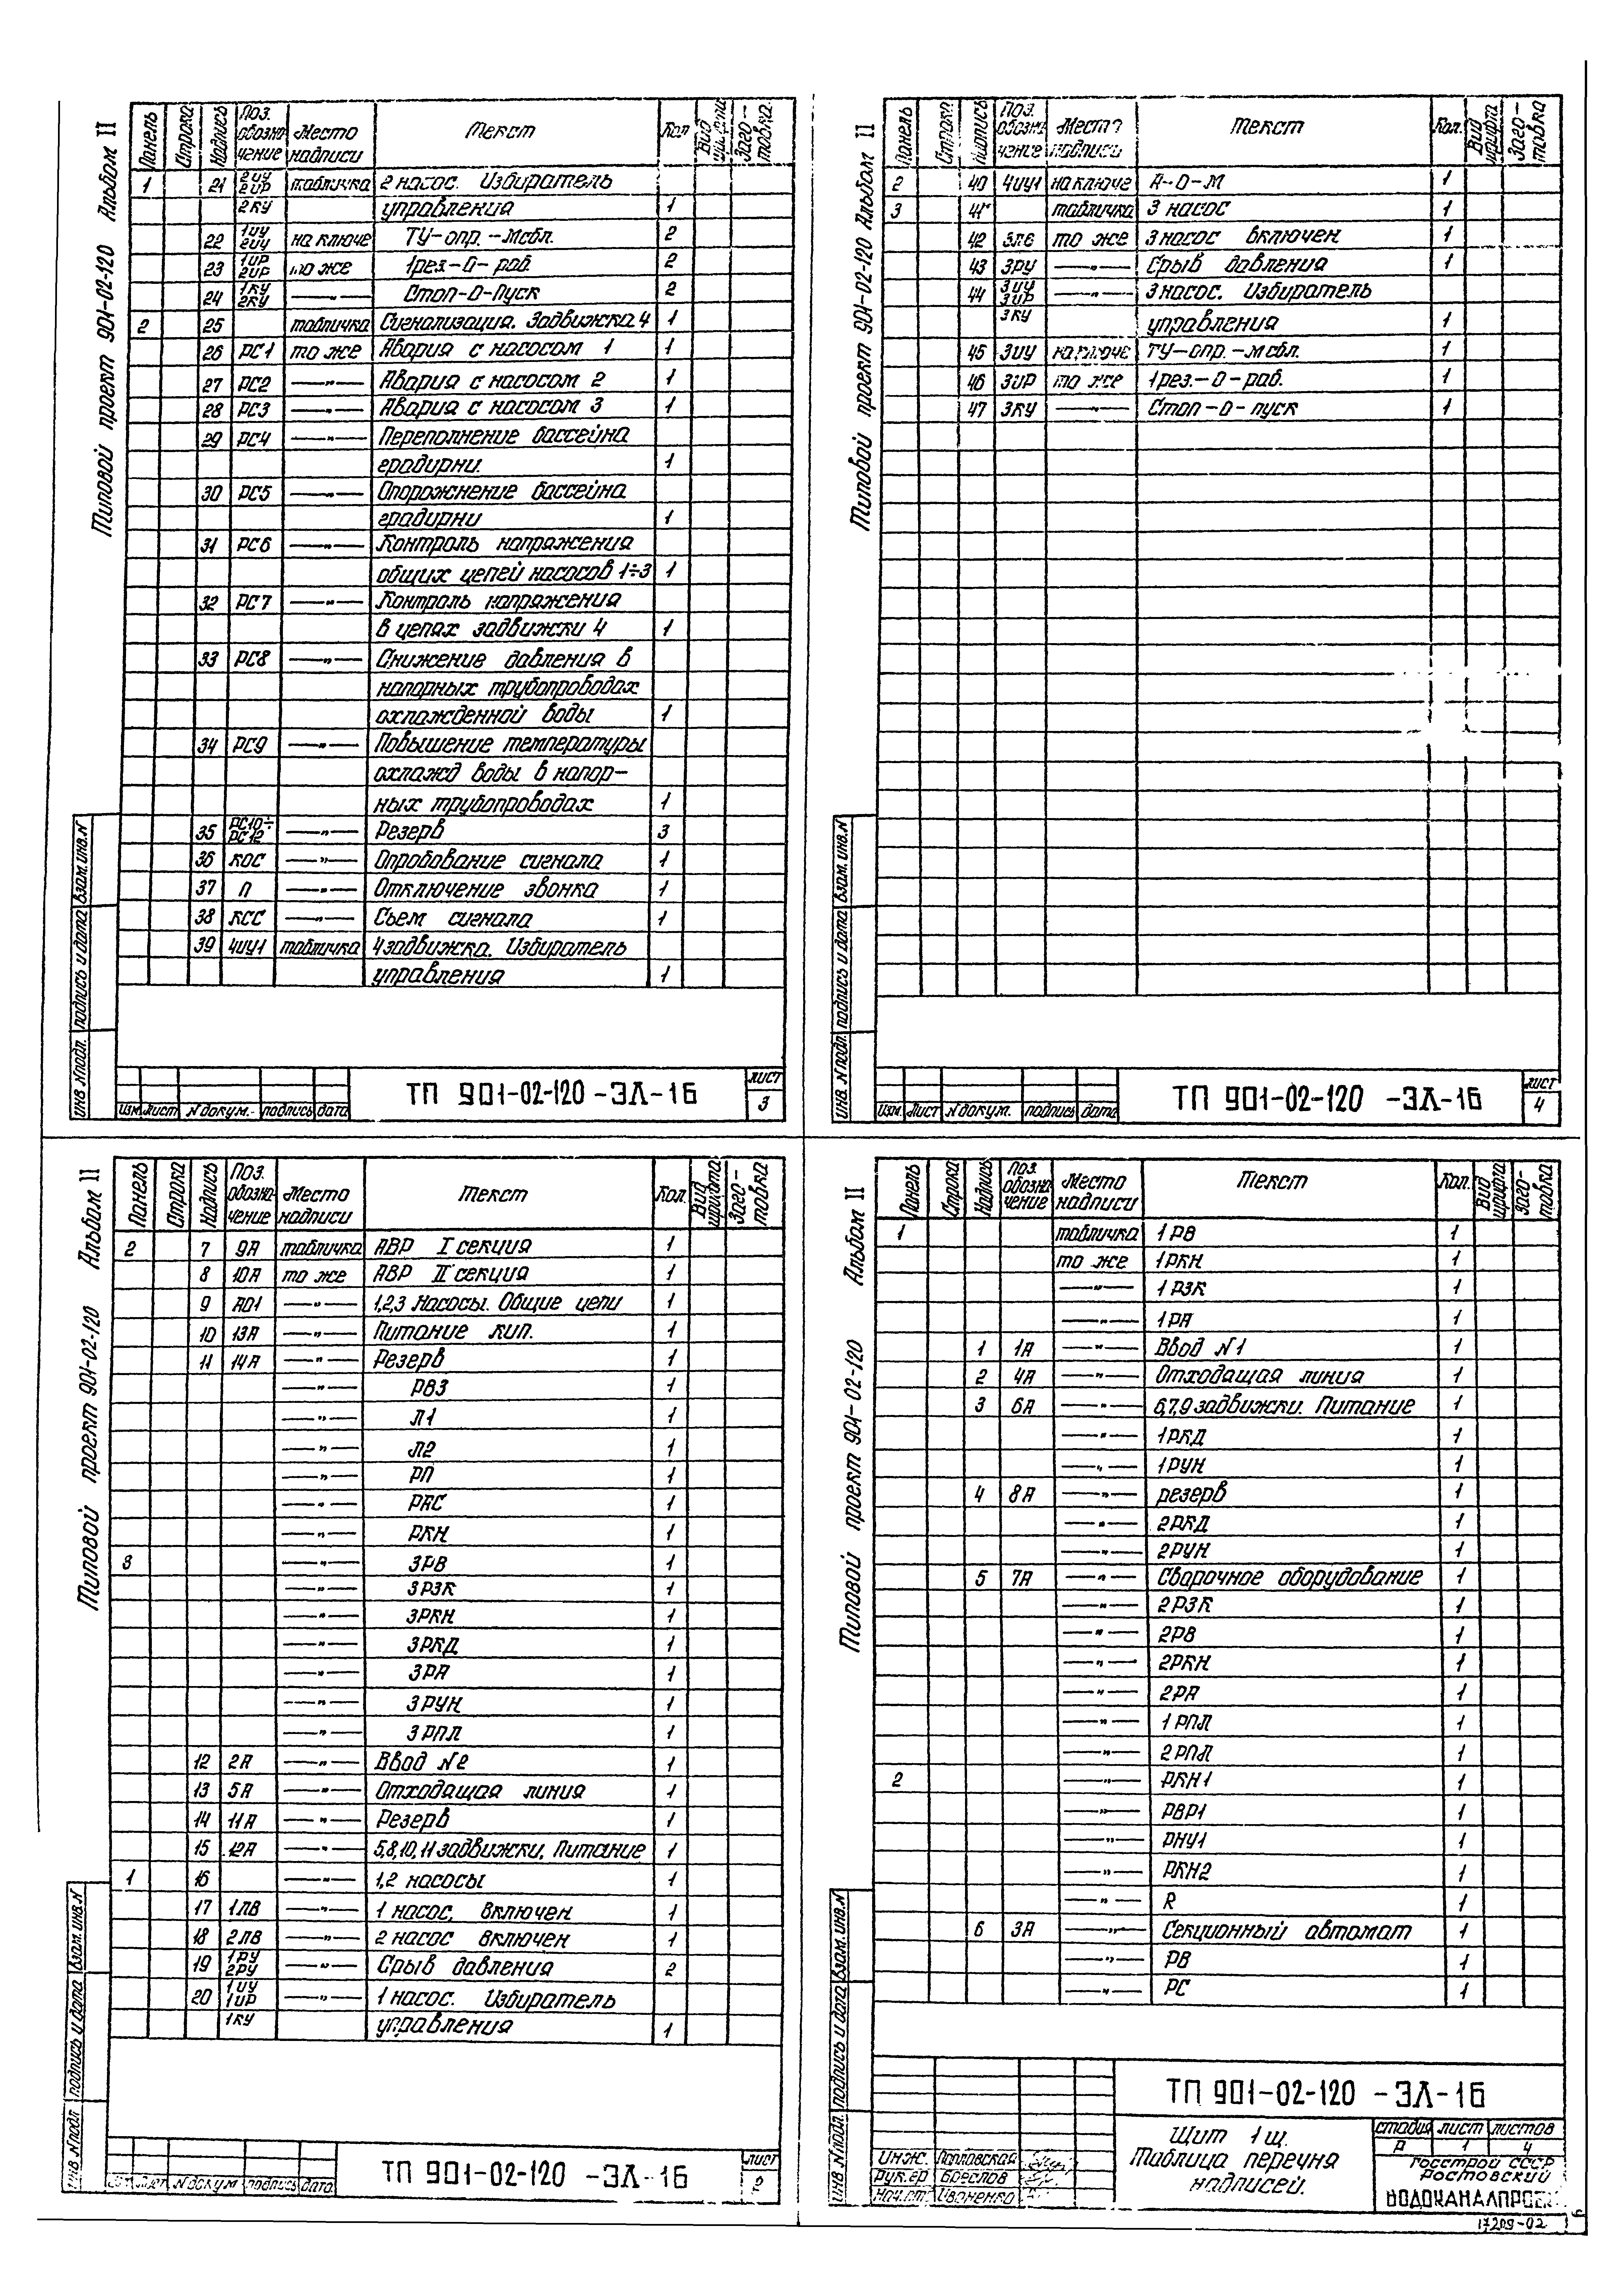 Типовой проект 901-02-120 Альбом II
Панель Строка Надпись Поз. обозначение Место надписи Текст Кол Вид шрифта Заготовка
1 21 2УУ 2ИР табличка 2 насос. Избиратель
2КУ управления 1
22 1УУ 2УУ на ключе ТУ-опр.-Мсбл. 2
23 1ИР 2ИР то же 1рез-О-раб. 2
24 1КУ 2КУ —"— Стоп-О-Пуск 2
2 25 табличка Сигнализация. Задвижка 4 1
26 РС1 то же Авария с насосом 1 1
27 РС2 —"— Авария с насосом 2 1
28 РС3 —"— Авария с насосом 3 1
29 РС4 —"— Переполнение бассейна
градирни. 1
30 РС5 —"— Опорожнение бассейна
градирни 1
31 РС6 —"— Контроль напряжения
общих цепей насосов 1÷3 1
32 РС7 —"— Контроль напряжения
в цепях задвижки 4 1
33 РС8 —"— Снижение давления в
напорных трубопроводах
охлажденной воды 1
34 РС9 —"— Повышение температуры
охлажд воды в напор-
ных трубопроводах 1
35 РС10÷ РС12 —"— Резерв 3
36 КОС —"— Опробование сигнала 1
37 П —"— Отключение звонка 1
38 КСС —"— Съем сигнала 1
39 4УУ1 табличка 4 задвижка. Избиратель
управления 1
инв. N подл. подпись и дата взам. инв. N
изм. лист N докум. подпись дата
ТП 901-02-120-ЭЛ-16
лист 3
Типовой проект 901-02-120 Альбом II
Панель Строка Надпись Поз. обозначение Место надписи Текст Кол. Вид шрифта Заготовка
2 40 4УУ1 на ключе А-О-М 1
3 41 табличка 3 насос 1
42 3ЛВ то же 3 насос включен 1
43 3РУ —"— Срыв давления 1
44 3УУ 3ИР —"— 3 насос. Избиратель
3КУ управления 1
45 3УУ на ключе ТУ-опр.-Мсбл. 1
46 3ИР то же 1рез.-О-раб. 1
47 3КУ —"— Стоп-О-пуск 1
инв. N подл. подпись и дата взам. инв. N
изм. Лист N докум. подпись дата
ТП 901-02-120-ЭЛ-16
лист 4
Типовой проект 901-02-120 Альбом II
Панель Строка Надпись Поз. обозна-чение Место надписи Текст Кол. Вид шрифта Заго-товка
2 7 9А табличка АВР I секция 1
8 10А то же АВР II секция 1
9 А01 —"— 1,2,3 Насосы. Общие цепи 1
10 13А —"— Питание кип. 1
11 14А —"— Резерв 1
—"— РВЗ 1
—"— Л1 1
—"— Л2 1
—"— РП 1
—"— РАС 1
—"— РКН 1
3 —"— 3РВ 1
—"— 3РЗК 1
—"— 3РКН 1
—"— 3РКД 1
—"— 3РА 1
—"— 3РУН 1
—"— 3РПЛ 1
12 2А —"— Ввод N2 1
13 5А —"— Отходащая линия 1
14 11А —"— Резерв 1
15 12А —"— 5,8,10,11 задвижки, Питание 1
1 16 —"— 1,2 насосы 1
17 1ЛВ —"— 1 насос. включен 1
18 2ЛВ —"— 2 насос включен 1
19 1РУ 2РУ —"— Срыв давления 2
20 1УУ 1ИР —"— 1 насос. Избиратель
1КУ управления 1
инв N подл подпись и дата взам. инв. N
изм лист N докум подпись дата
ТП 901-02-120-ЭЛ-16
лист 2
Типовой проект 901-02-120 Альбом II
Панель Строка Надпись Поз. обозна чение Место надписи Текст Кол. Вид шрифта Заго-товка
1 табличка 1РВ 1
то же 1РКН 1
—"— 1РЗК 1
—"— 1РА 1
1 1А —"— Ввод N1 1
2 4А —"— Отходащая линия 1
3 6А —"— 6,7,9 задвижки. Питание 1
—"— 1РКД 1
—"— 1РУН 1
4 8А —"— резерв 1
—"— 2РКД 1
—"— 2РУН 1
5 7А —"— Сварочное оборудование 1
—"— 2РЗК 1
—"— 2РВ 1
—"— 2РКН 1
—"— 2РА 1
—"— 1РПЛ 1
—"— 2РПЛ 1
2 —"— РКН1 1
—"— РВР1 1
—"— РНУ1 1
—"— РКН2 1
—"— R 1
6 3А —"— Секционный автомат 1
—"— РВ 1
—"— РС 1
инв. N подл. подпись и дата взам. инв. N
ТП 901-02-120-ЭЛ-16
Щит 1щ.
Таблица перечня
надписей.
стадия лист листов
Р 1 4
Госстрой СССР
Ростовский
ВОДОКАНАЛПРОЕК
Инж. Павловская
Рук.гр Бреслов
Нач.от. Иваненко
17209-02 6